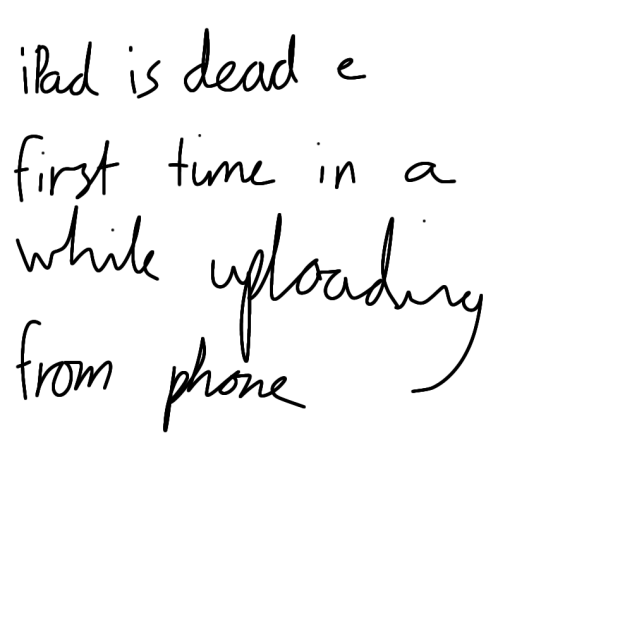 iPad is dead e
first time in a
while uploading
from phone